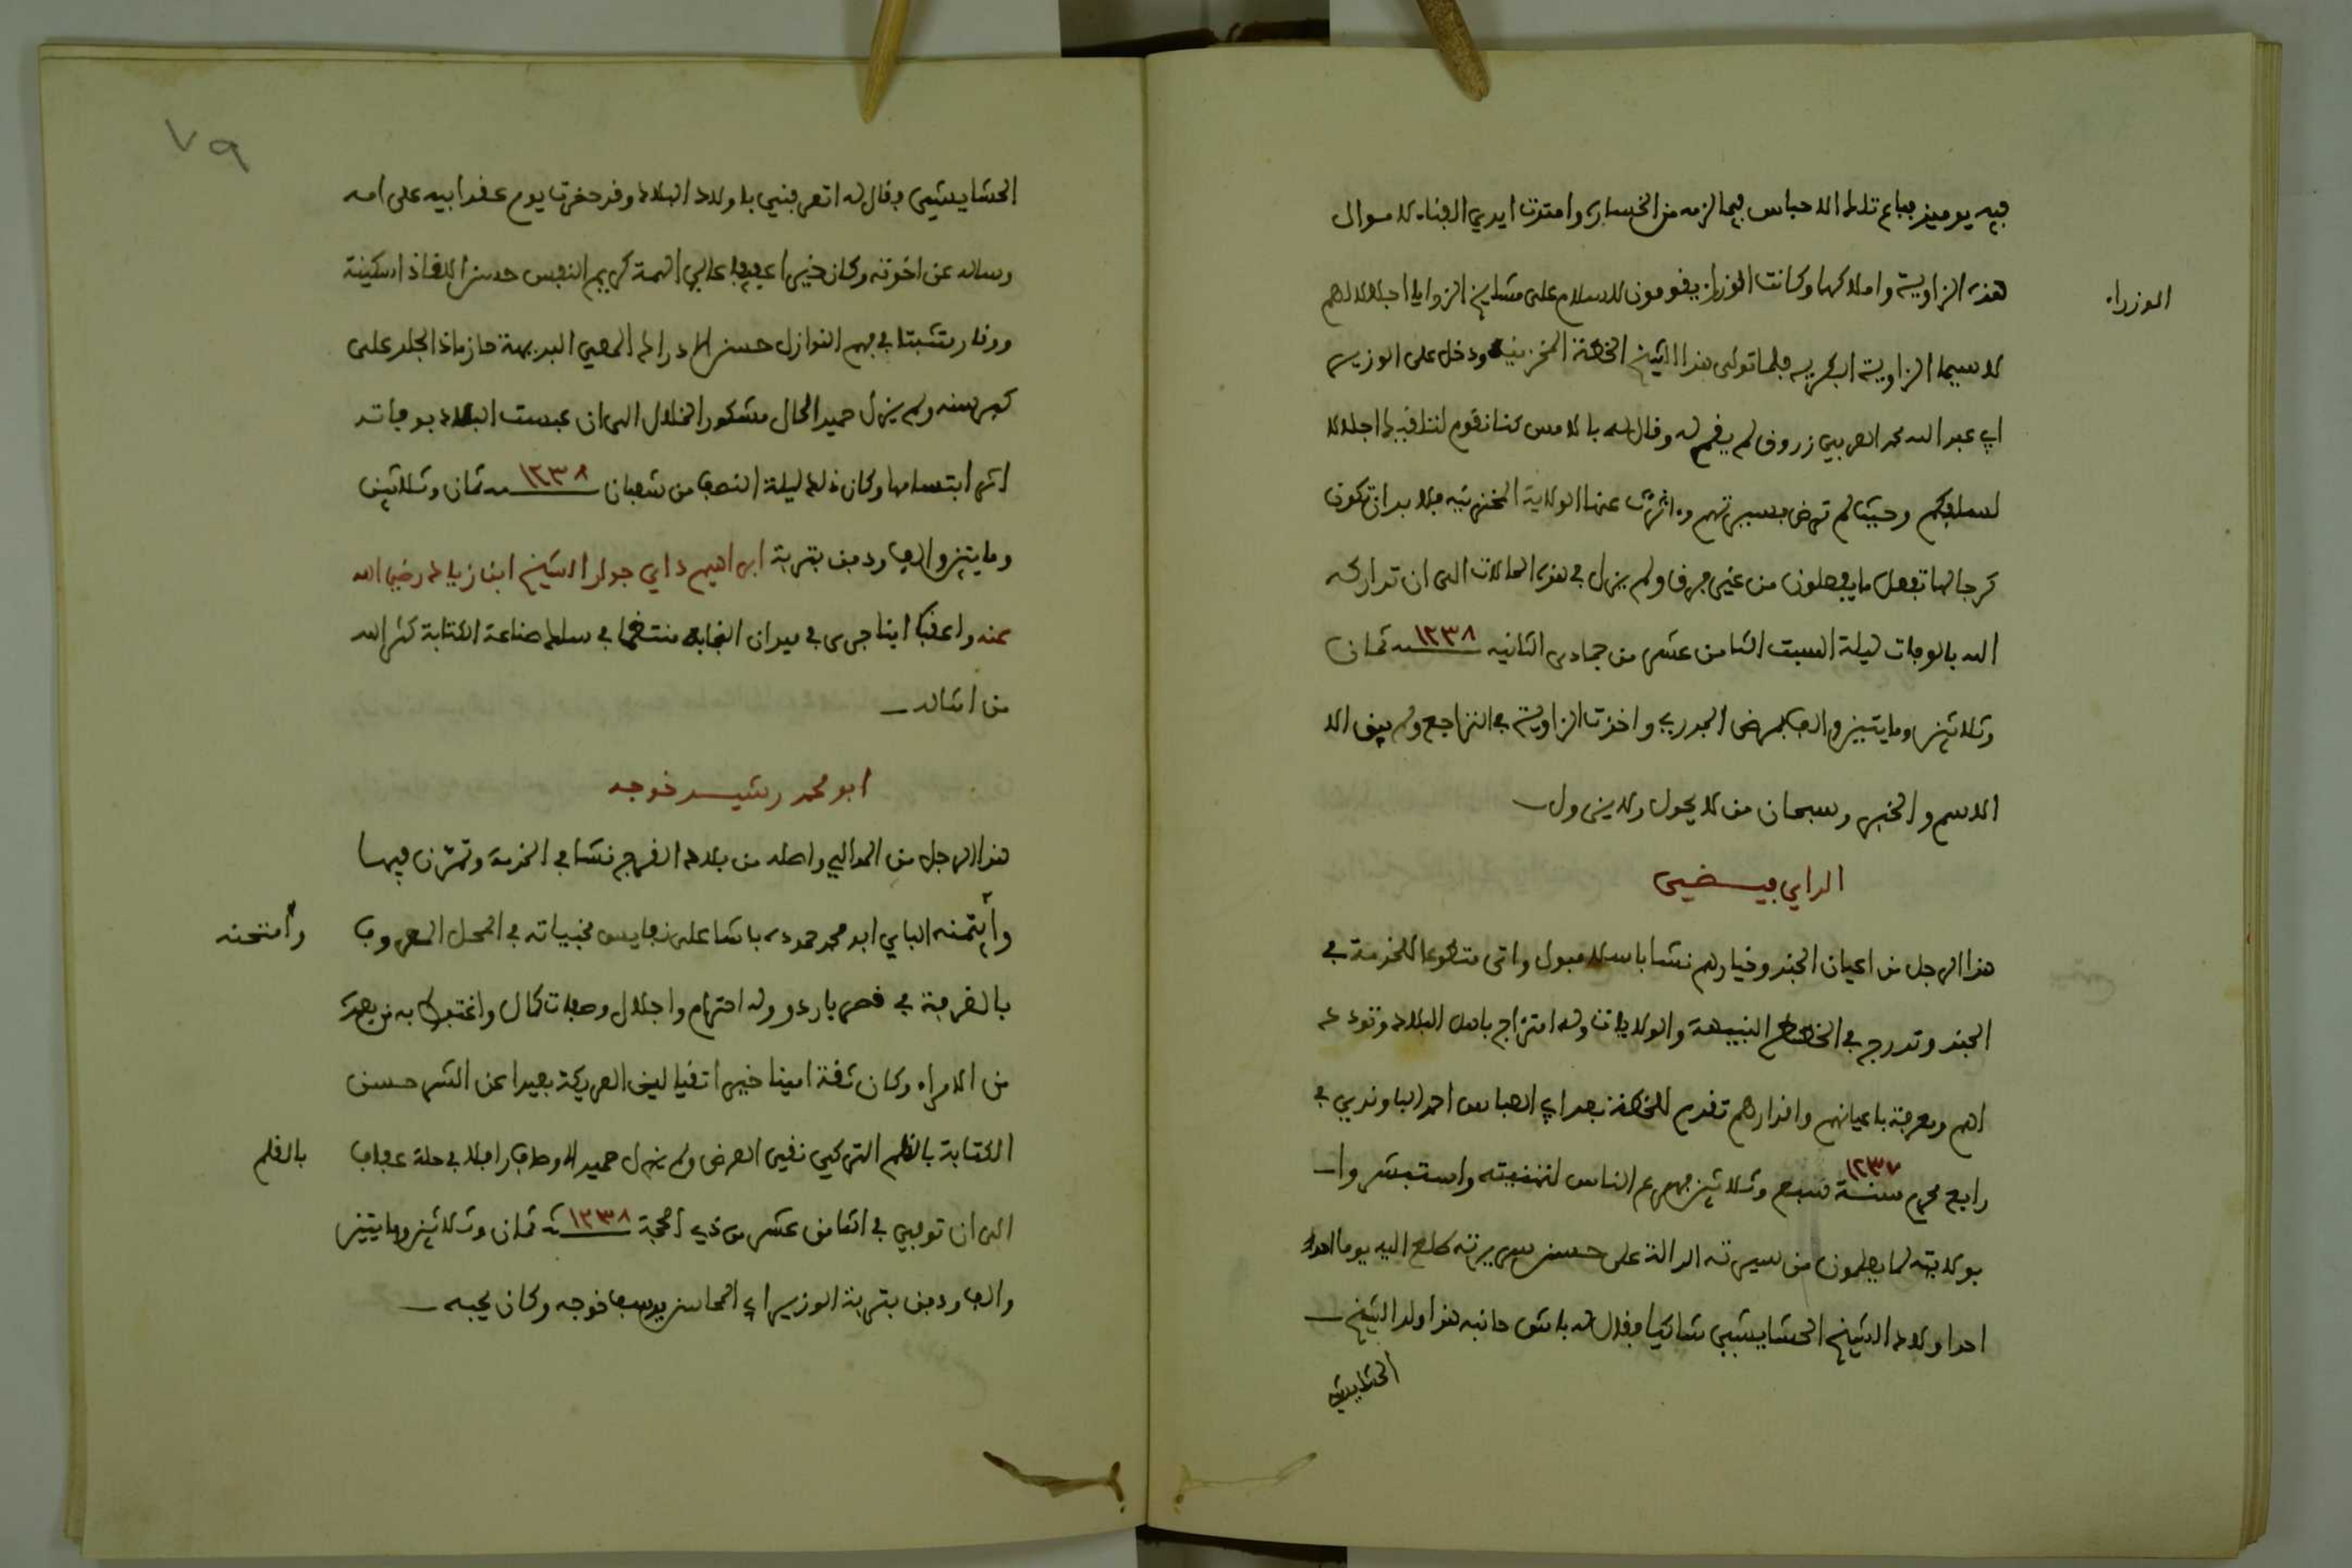 فيه يوميذ فباع تلك الاحباس فيما لزمه من الخسارة وامتدت ايدي الفناء لاموال
هذه الزاوية واملاكها وكانت الوزراء يقومون للسلام على مشايخ الزوايا اجلالا لهم
الوزراء
لا سيما الزاوية البكرية فلما تولى هذا الشيخ الخطة المخزنية ودخل على الوزير
ابي عبد الله محمد العربي زروق لم يقم له وقال له بالامس كنا نقوم لتلقيك اجلالا
لسلفكم وحيث لم ترض بسيرتهم واثرت عنها الولاية المخزنية فلا بد ان تكون
كرجالها تفعل ما يفعلون من غير فرق ولم يزل في هذه الحالات الى ان تداركه
الله بالوفات ليلة السبت الثامن عشر من جمادى الثانية ١٢٣٨ـنة ثمان
وثلاثين ومايتين والف بمرض الجدري واخذت الزاوية في التراجع ولم يبق الا
الاسم والخبر وسبحان من لا يحول ولا يزول
الداي فيضي
هذا الرجل من اعيان الجند وخيارهم نشا باسلامبول واتى متطوعا للخدمة في
الجند وتدرج في الخطط النبيهة والولايات وله امتزاج باهل البلاد وتودد
لهم ومعرفة باعيانهم واقدارهم تقدم للخطة بعد ابي العباس احمد الباوندي في
رابع محرم سنة ١٢٣٧ سبع وثلاثين فهرع الناس لتهنيته واستبشروا
بولايته لما يعلمون من سيرته الدالة على حسن سريرته طلع اليه يوما
احد اولاد الشيخ الحشايشي شاكيا فقال له باش حانبه هذا ولد الشيخ
الحشايشي
٧٩
الحشايشي فقال له اتعرفني باولاد البلاد وقد حضرت يوم عقد ابيه على امه
وساله عن اخوته وكان خيرا عفيفا عالي الهمة كريم النفس حسن اللقاء ذا سكينة
ووقار متثبتا في فهم النوازل حسن الادراك المعي البديهة حازما ذا جلد على
كبر سنه ولم يزل حميد الحال مشكور الخلال الى ان عبست البلاد بوفاته
اثر ابتسامها وكان ذلك ليلة النصف من شعبان ١٢٣٨ـنة ثمان وثلاثين
ومايتين والف ودفن بتربة ابراهيم داي جوار الشيخ ابن زياد رضي الله
عنه واعقب ابنا جرى في ميدان النجابة منتظما في سلك صناعة الكتابة كثر الله
من امثاله
ابو محمد رشيد خوجه
هذا الرجل من الموالي واصله من بلاد الفرج نشا في الخدمة وتمرن فيها
وأيتمنه الباي ابو محمد حموده باشا على نفايس مخبياته في المحل المعروف
وأمتحنه
بالغرفة في قصر باردو وله احترام واجلال وصفات كمال واغتبط به من بعده
من الامراء وكان ثقة امينا خيرا تقيا لين العريكة بعيدا عن الشر حسن
الكتابة بالقلم التركي نقي العرض ولم يزل حميد الاوصاف رافلا في حلة عفاف
بالقلم
الى ان توفي في الثامن عشر من ذي الحجة ١٢٣٨ـنة ثمان وثلاثين ومايتين
والف ودفن بتربة الوزير ابي المحاسن يوسف خوجه وكان يحبه